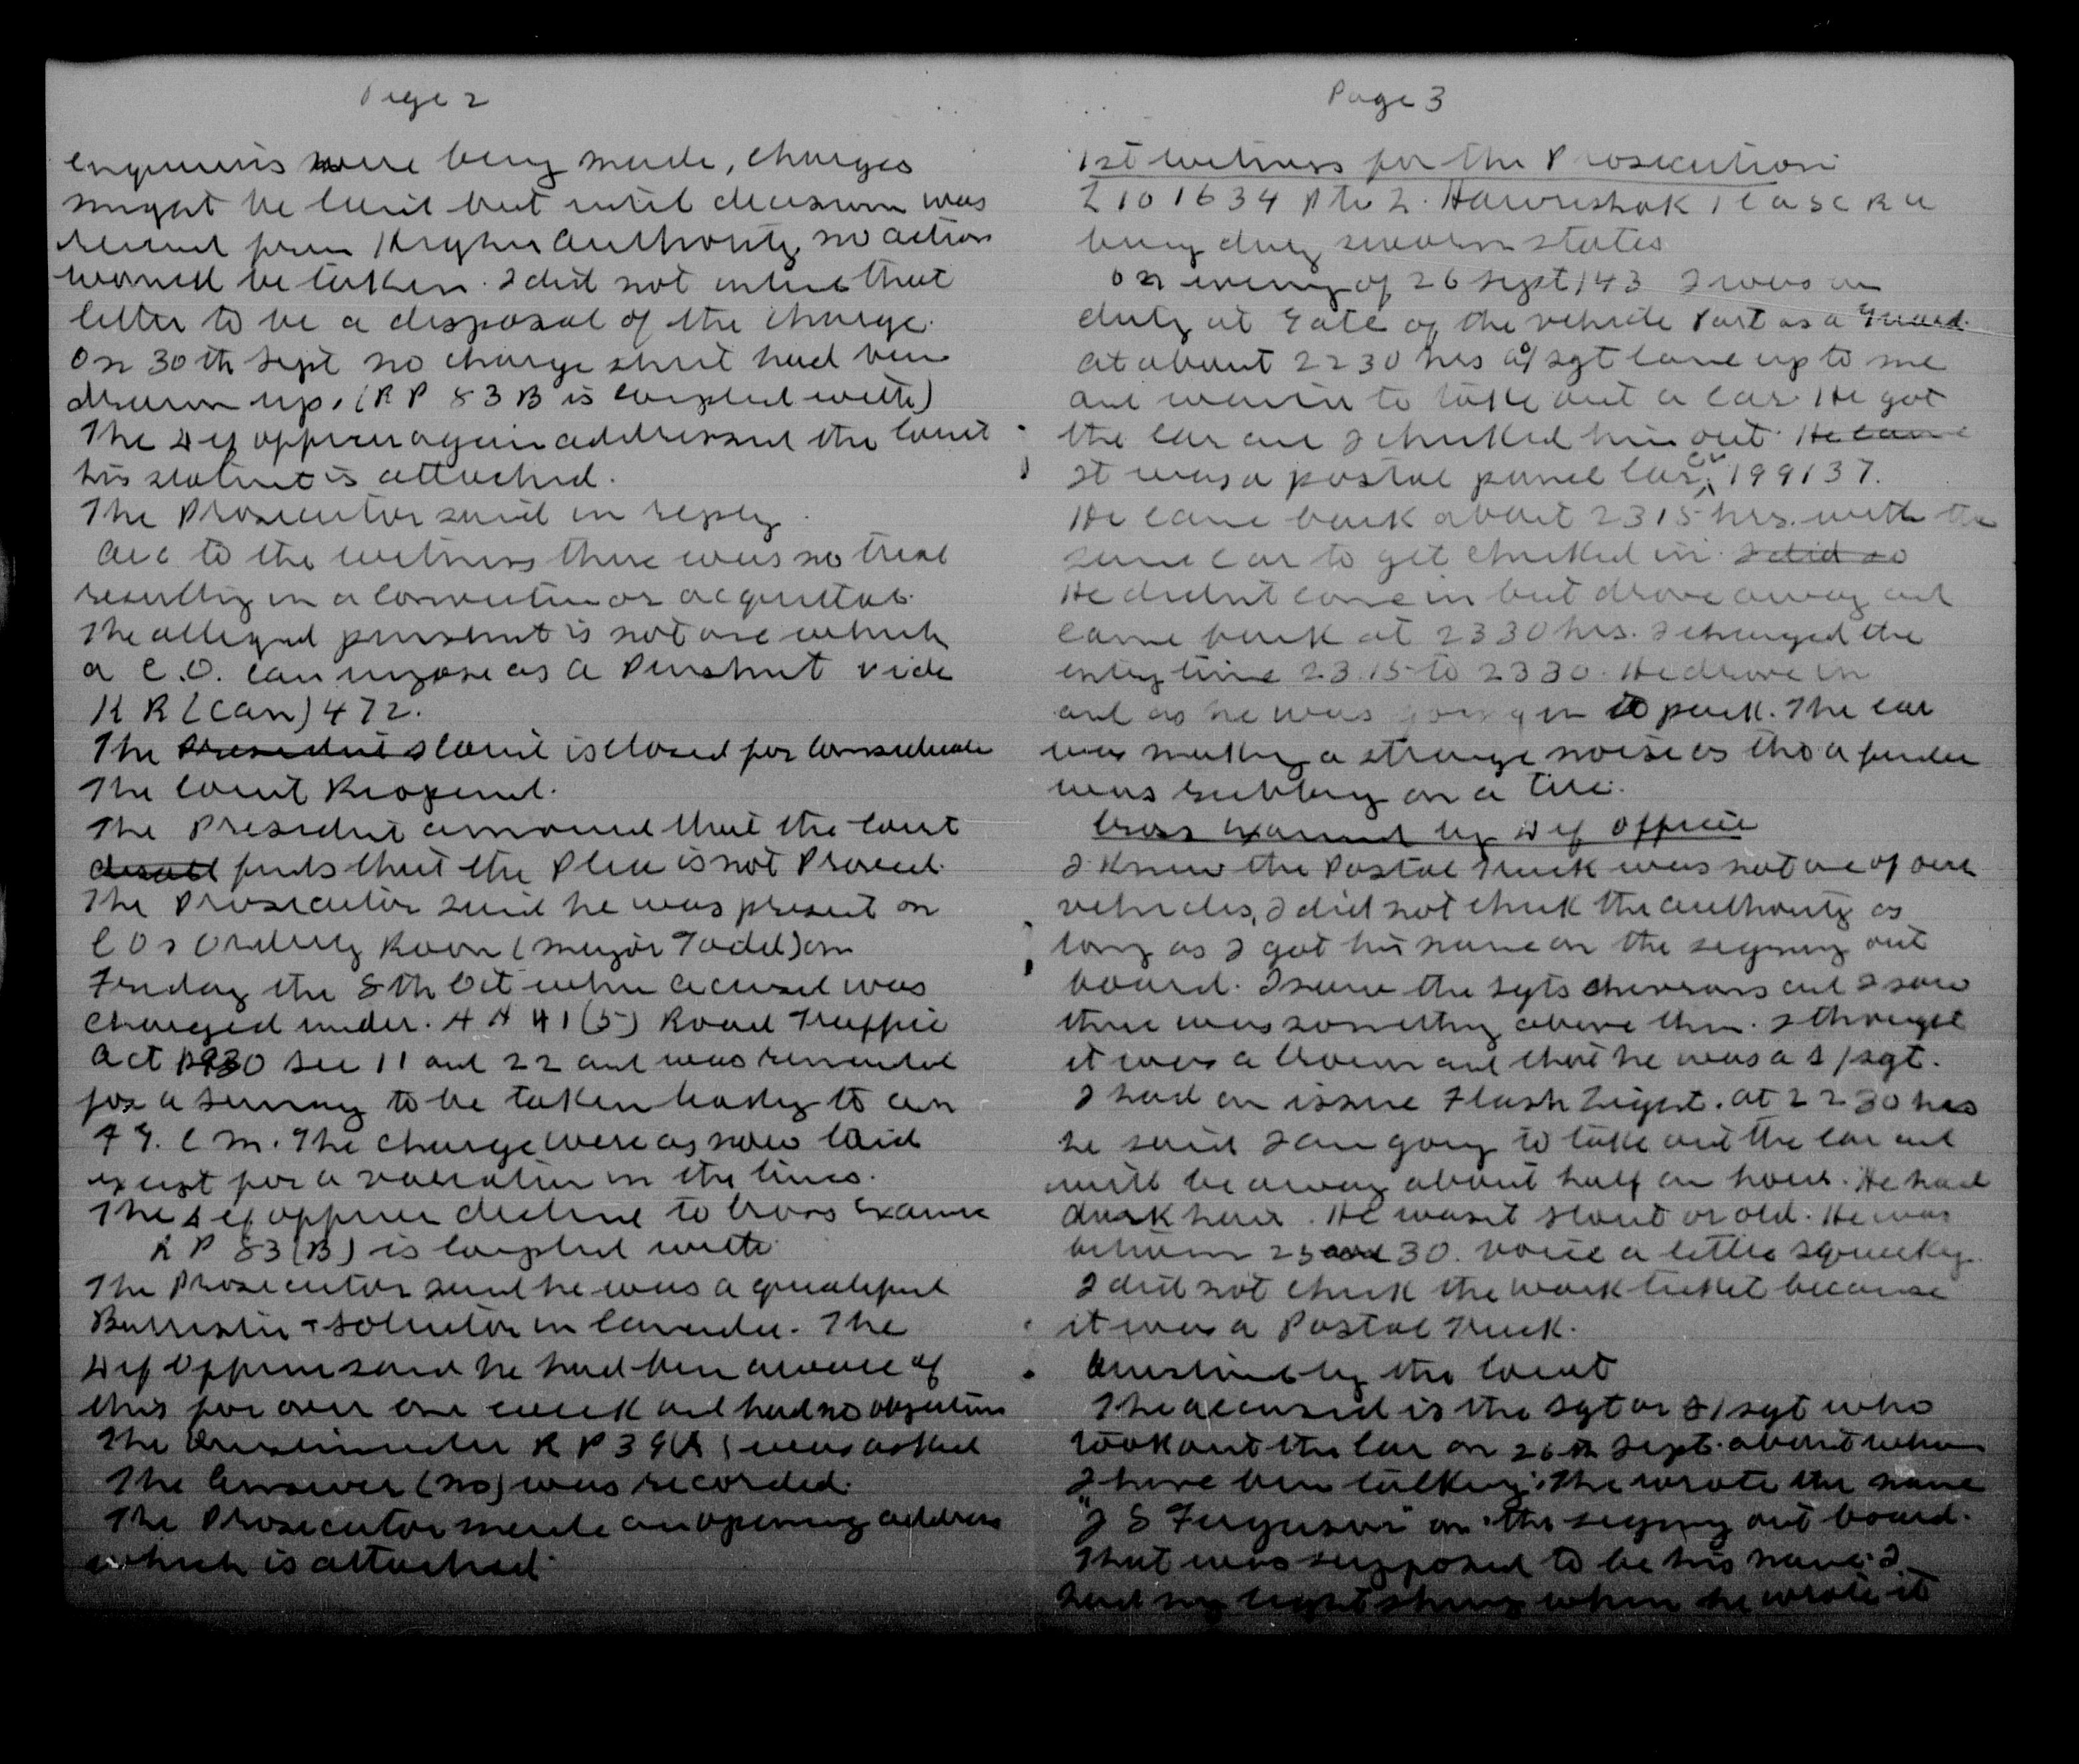 Page 2
enquiries were being made, charges
might be laid but until decision was
received from Higher Authority, no action
would be taken. I did not intend that
letter to be a disposal of the charge.
On 30th Sept no charge sheet had been
drawn up. (RP 83 B is complied with)
The Def officer again addressed the Court
his statement is attached.
The Prosecutor said in reply
Acc to the witness there was no trial
resulting in a conviction or acquittal.
The alleged punishment is not one which
a C.O. can impose as a Punishment vide
KR (Can) 472.
The President s Court is closed for consideration
The Court Reopened.
The President announced that the Court
finds that the Plea is not Proved.
The Prosecutor said he was present on
COs Orderly Room (Major Todd) on
Friday the 8th Oct when accused was
charged under. AA 41(5) Road Traffic
Act 1930 sec 11 and 22 and was remanded
for a summary to be taken leading to an
F.G.C.M. The charge were as now laid
except for a variation in the lines.
The Def officer declined to Cross Examine
RP 83(B) is complied with
The Prosecutor said he was a qualified
Barrister + Solicitor in Canada. The
Def Officer said he had been aware of
this for over one week and had no objections
The Question under RP 39(A) was asked
The Answer (no) was recorded.
The Prosecutor made an opening address
which is attached.
Page 3
1st witness for the Prosecution
L 101634 Pte L. Hawreshok 1 CASCRU
being duly sworn states
On evening of 26 Sept/43 I was on
duty at Gate of the vehicle Park as a Guard.
At about 2230 hrs a/sgt came up to me
and wanted to take out a car. He got
the car and I checked him out. He came
It was a postal panel car, 199137.
He came back about 2315 hrs. with the
same car to get checked in. I did so
He didn't come in but drove away and
came back at 2330 hrs. I changed the
entry time 23.15 to 2330. He drove in
and as he was going in to park. The car
was making a strange noise as tho a fender
was rubbing on a tire.
Cross Examined by Def Officer
I knew the Postal Truck was not one of our
vehicles, I did not check the authority as
long as I got his name on the signing out
board. I saw the sgts chevrons and I saw
there was something above them. I thought
it was a Crown and that he was a S/sgt.
I had an issue Flash Light. At 2230 hrs
he said I am going to take out the car and
will be away about half an hour. He had
dark hair. He wasn't stout or old. He was
between 25 and 30. Voice a little squeaky.
I did not check the work ticket because
it was a Postal Truck.
Questioned by the Court
The accused is the Sgt or S/sgt who
took out the car on 26th Sept. about whom
I have been talking. He wrote the name
"J S Ferguson" on the signing out board.
That was supposed to be his name. I
had my light shining when he wrote it